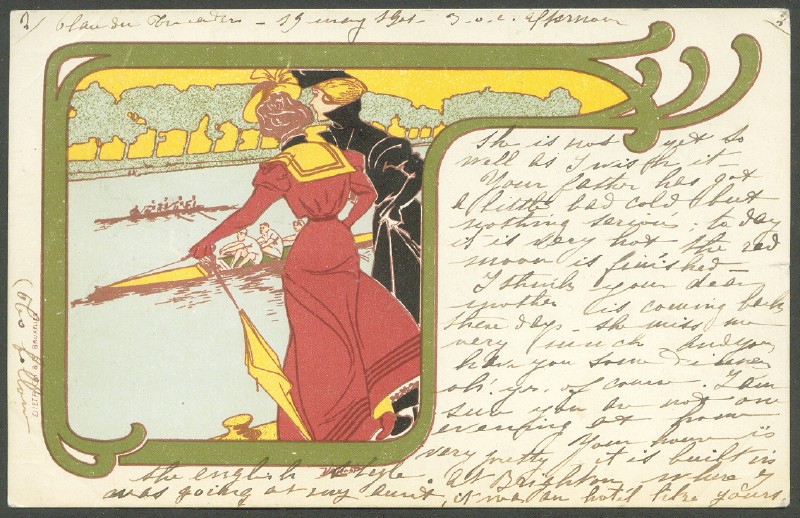 2) - 19 may 1901 - 3 o.c. afternoon
3)
she is not yet so
well as I wish it
Your father has got
a little bad cold but
nothing serious; to day
it is very hot the red
moon is finished -
I think your dear
mother is coming back
these days - she miss me
very much and you
have you some dinners
oh! yes, of course. I am
sure you are not one
evening at home
Your house is
very pretty it is built in
the english style. at Brighton where I
was going at my aunt, it was an hotel like yours.